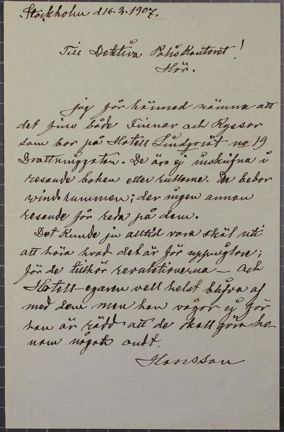 Stockholm d 16.3.1907.
Till Dektiva Poliskontoret!
Här.
jag får härmed nämna att
det fins både Finnar och Ryssor
som bor på Hotell Lindqvist no 19
Drottninggatan. De äro ej inskrifna i
resande boken etter ruttorne. De bebor
vindsrummen; der ingen annan
resande får reda på dem.
Det kunde ju alltid vara skäl uti
att höra hvad det är för uppviglare;
för de tillhör revolutionerna — och
Hotell egaren vell helst blifva af
med dem men han vågar ej för
han är rädd att de skall göra ho-
nom något ondt.
Hansson